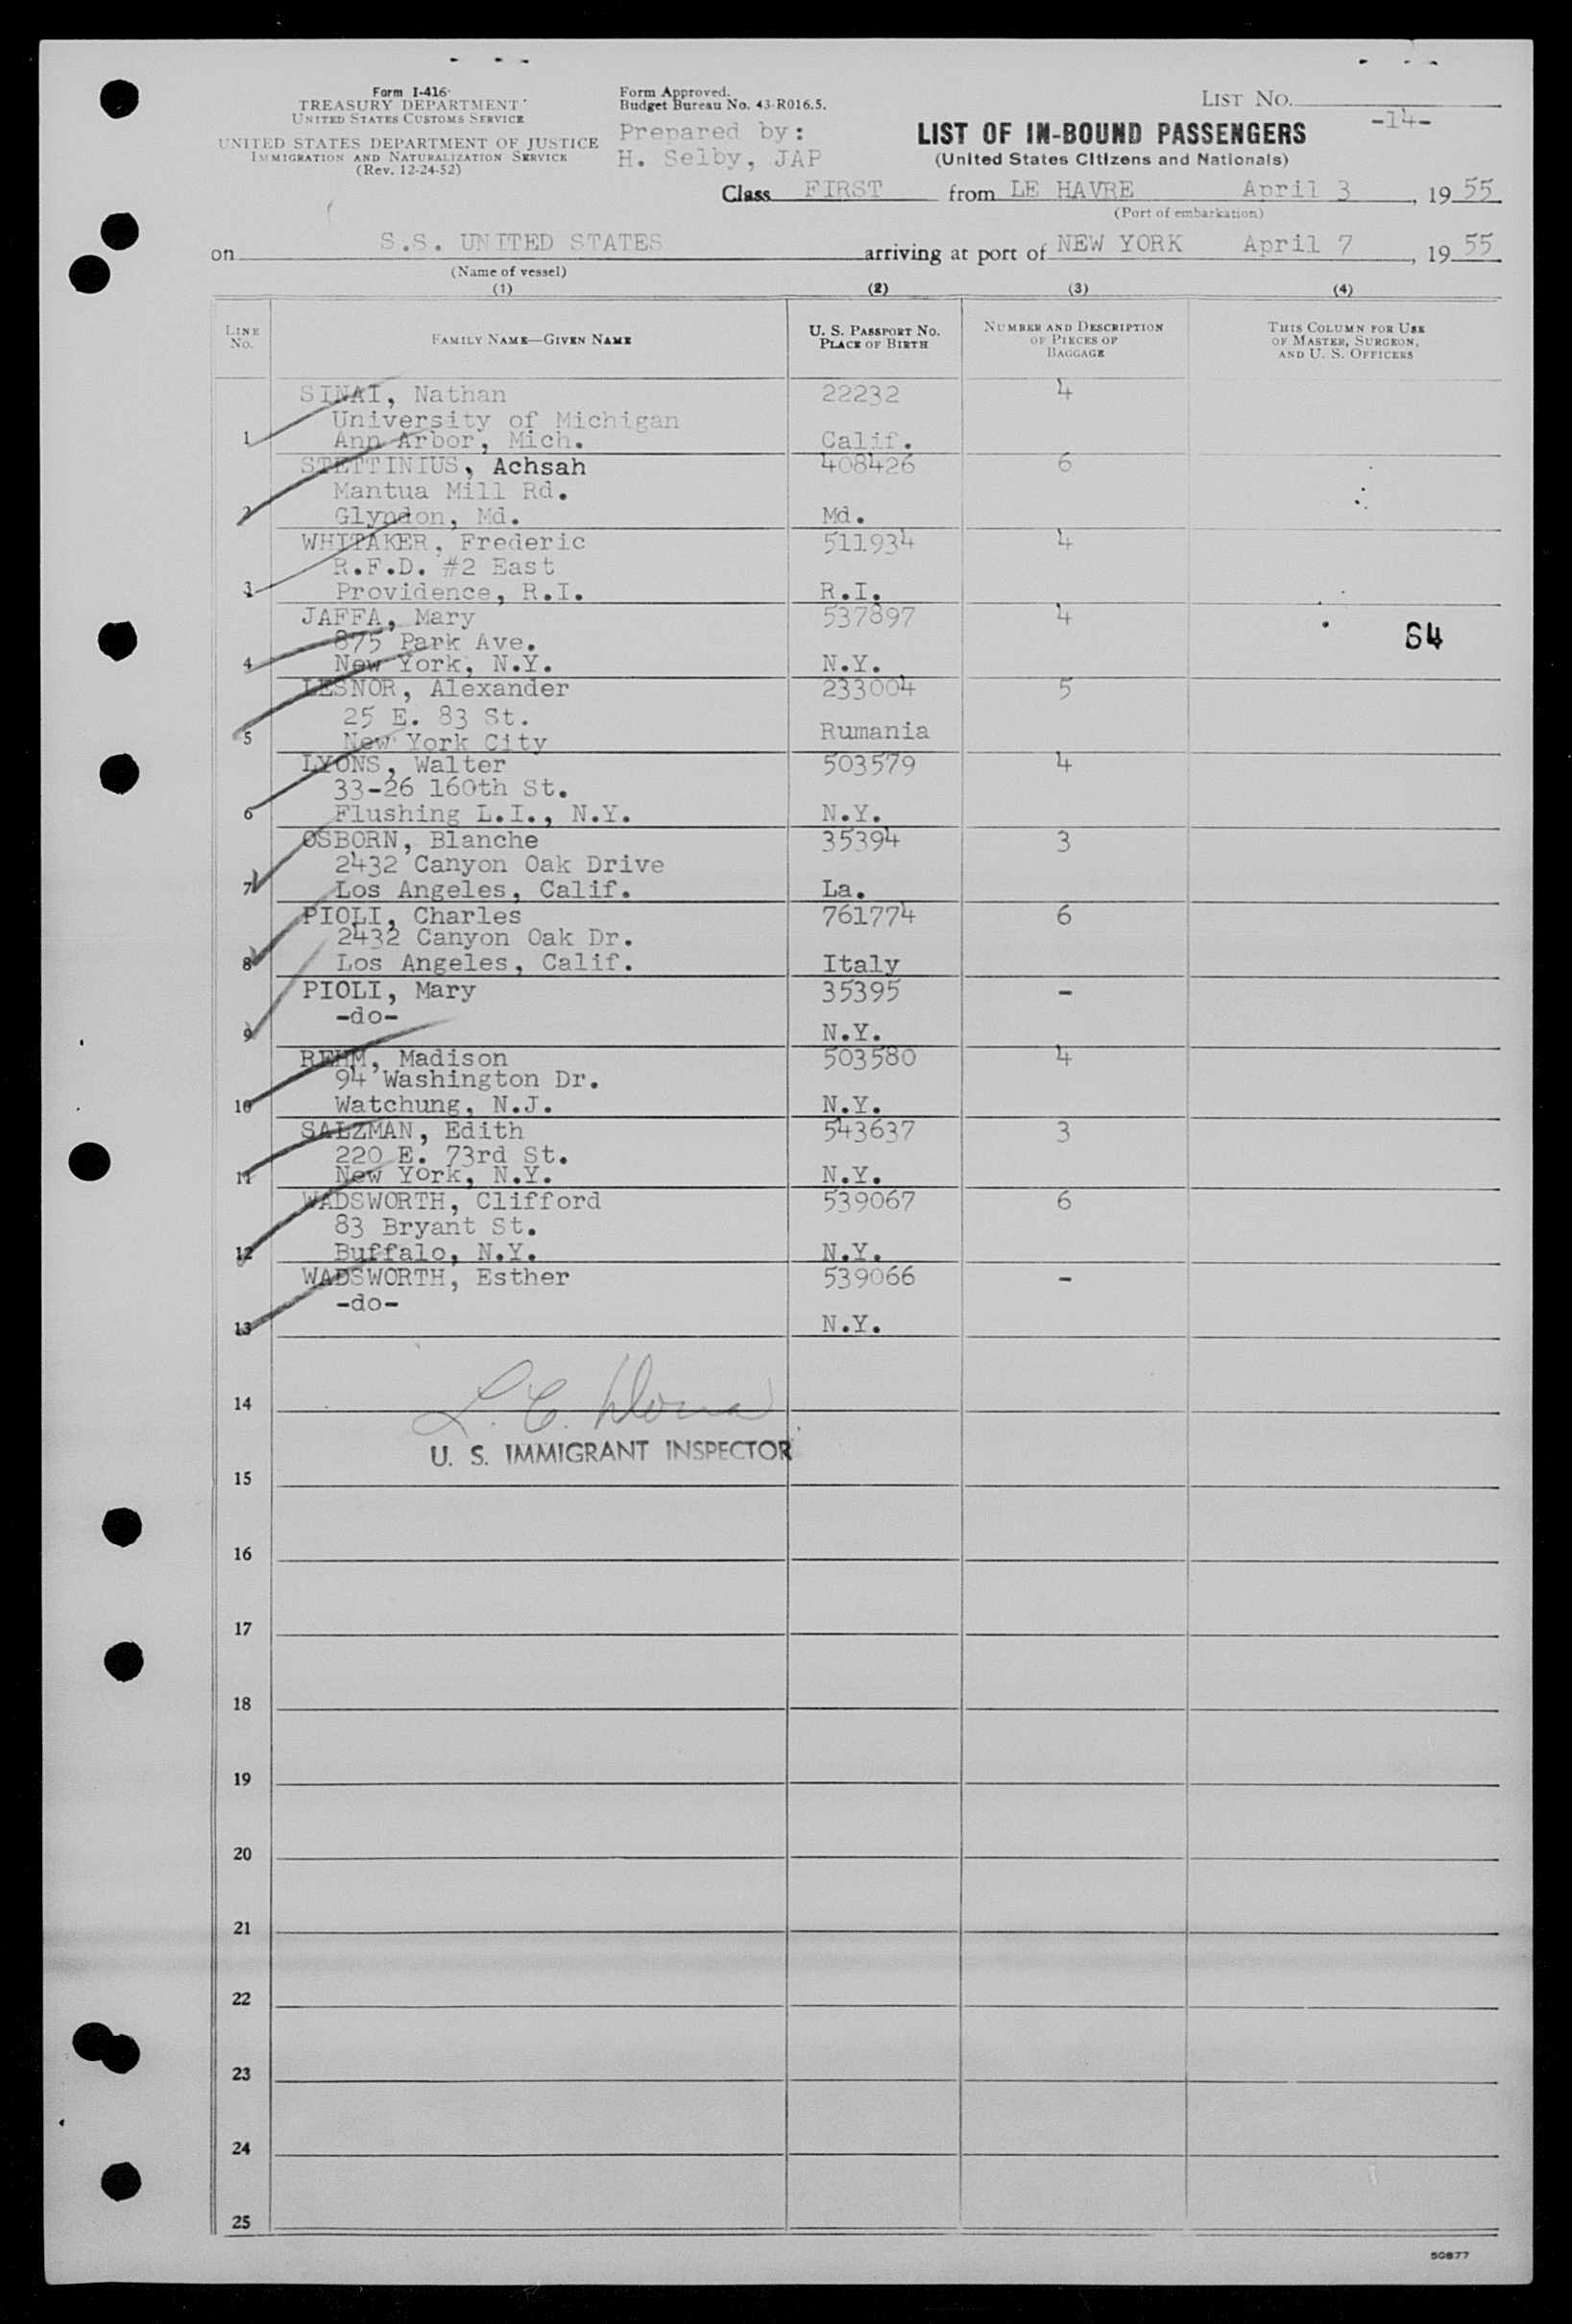 Form I-416
TREASURY DEPARTMENT
UNITED STATES CUSTOMS SERVICE
UNITED STATES DEPARTMENT OF JUSTICE
IMMIGRATION AND NATURALIZATION SERVICE
(Rev. 12-24-52)
Form Approved.
Budget Bureau No. 43-R016.5.
Prepared by:
H. Selby, JAP
LIST NO.
-14-
LIST OF IN-BOUND PASSENGERS
(United States Citizens and Nationals)
Class FIRST from LE HAVRE April 3, 1955
(Port of embarkation)
on S.S. UNITED STATES arriving at port of NEW YORK April 7, 1955
(Name of vessel)
(1) (2) (3) (4)
LINE NO.
FAMILY NAME—GIVEN NAME
U. S. PASSPORT NO.
PLACE OF BIRTH
NUMBER AND DESCRIPTION
OF PIECES OF
BAGGAGE
THIS COLUMN FOR USE
OF MASTER, SURGEON,
AND U. S. OFFICERS
SINAI, Nathan 22232 4
University of Michigan
1 Ann Arbor, Mich. Calif.
STETTINIUS, Achsah 408426 6
Mantua Mill Rd.
2 Glyndon, Md. Md.
WHITAKER, Frederic 511934 4
R.F.D. #2 East
3 Providence, R.I. R.I.
JAFFA, Mary 537897 4
875 Park Ave. S4
4 New York, N.Y. N.Y.
LESNOR, Alexander 233004 5
25 E. 83 St.
5 New York City Rumania
LYONS, Walter 503579 4
33-26 160th St.
6 Flushing L.I., N.Y. N.Y.
OSBORN, Blanche 35394 3
2432 Canyon Oak Drive
7 Los Angeles, Calif. La.
PIOLI, Charles 761774 6
2432 Canyon Oak Dr.
8 Los Angeles, Calif. Italy
PIOLI, Mary 35395 -
-do-
9 N.Y.
REHM, Madison 503580 4
94 Washington Dr.
10 Watchung, N.J. N.Y.
SALZMAN, Edith 543637 3
220 E. 73rd St.
11 New York, N.Y. N.Y.
WADSWORTH, Clifford 539067 6
83 Bryant St.
12 Buffalo, N.Y. N.Y.
WADSWORTH, Esther 539066 -
-do-
13 N.Y.
14 L. C.
U. S. IMMIGRANT INSPECTOR
15
16
17
18
19
20
21
22
23
24
25
50877